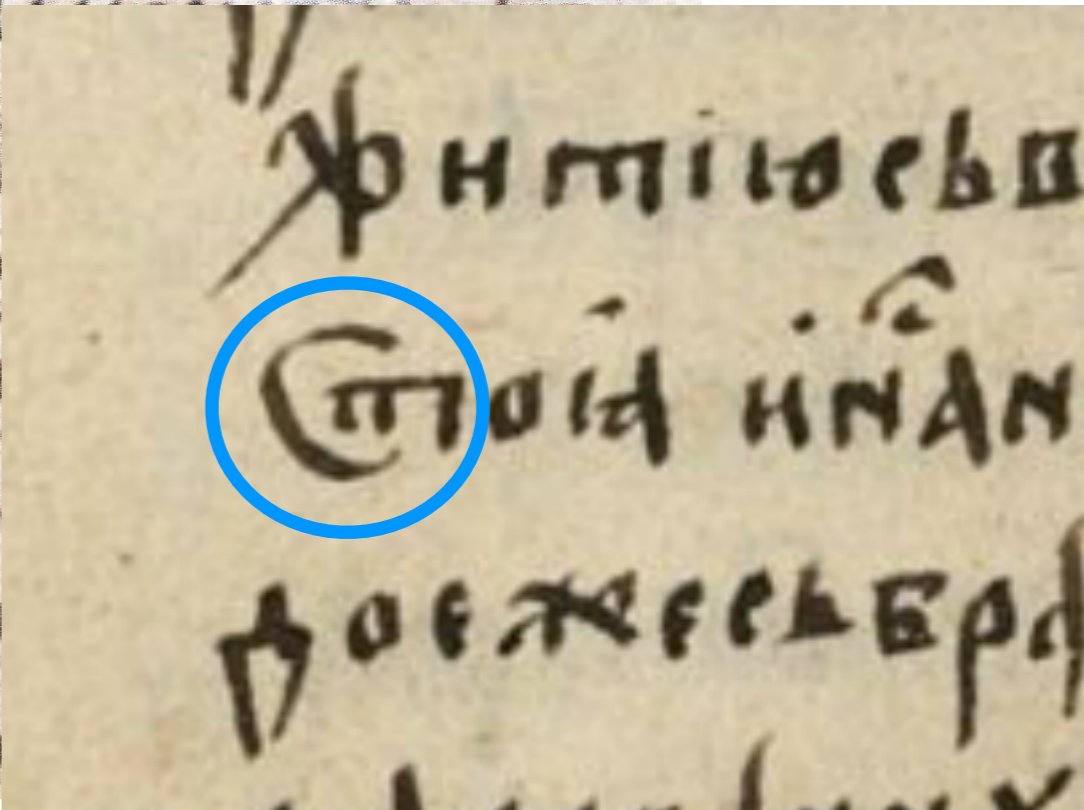 хритїюсьв
Стоꙗ инⷭ҇ан
доєжеєсьбра